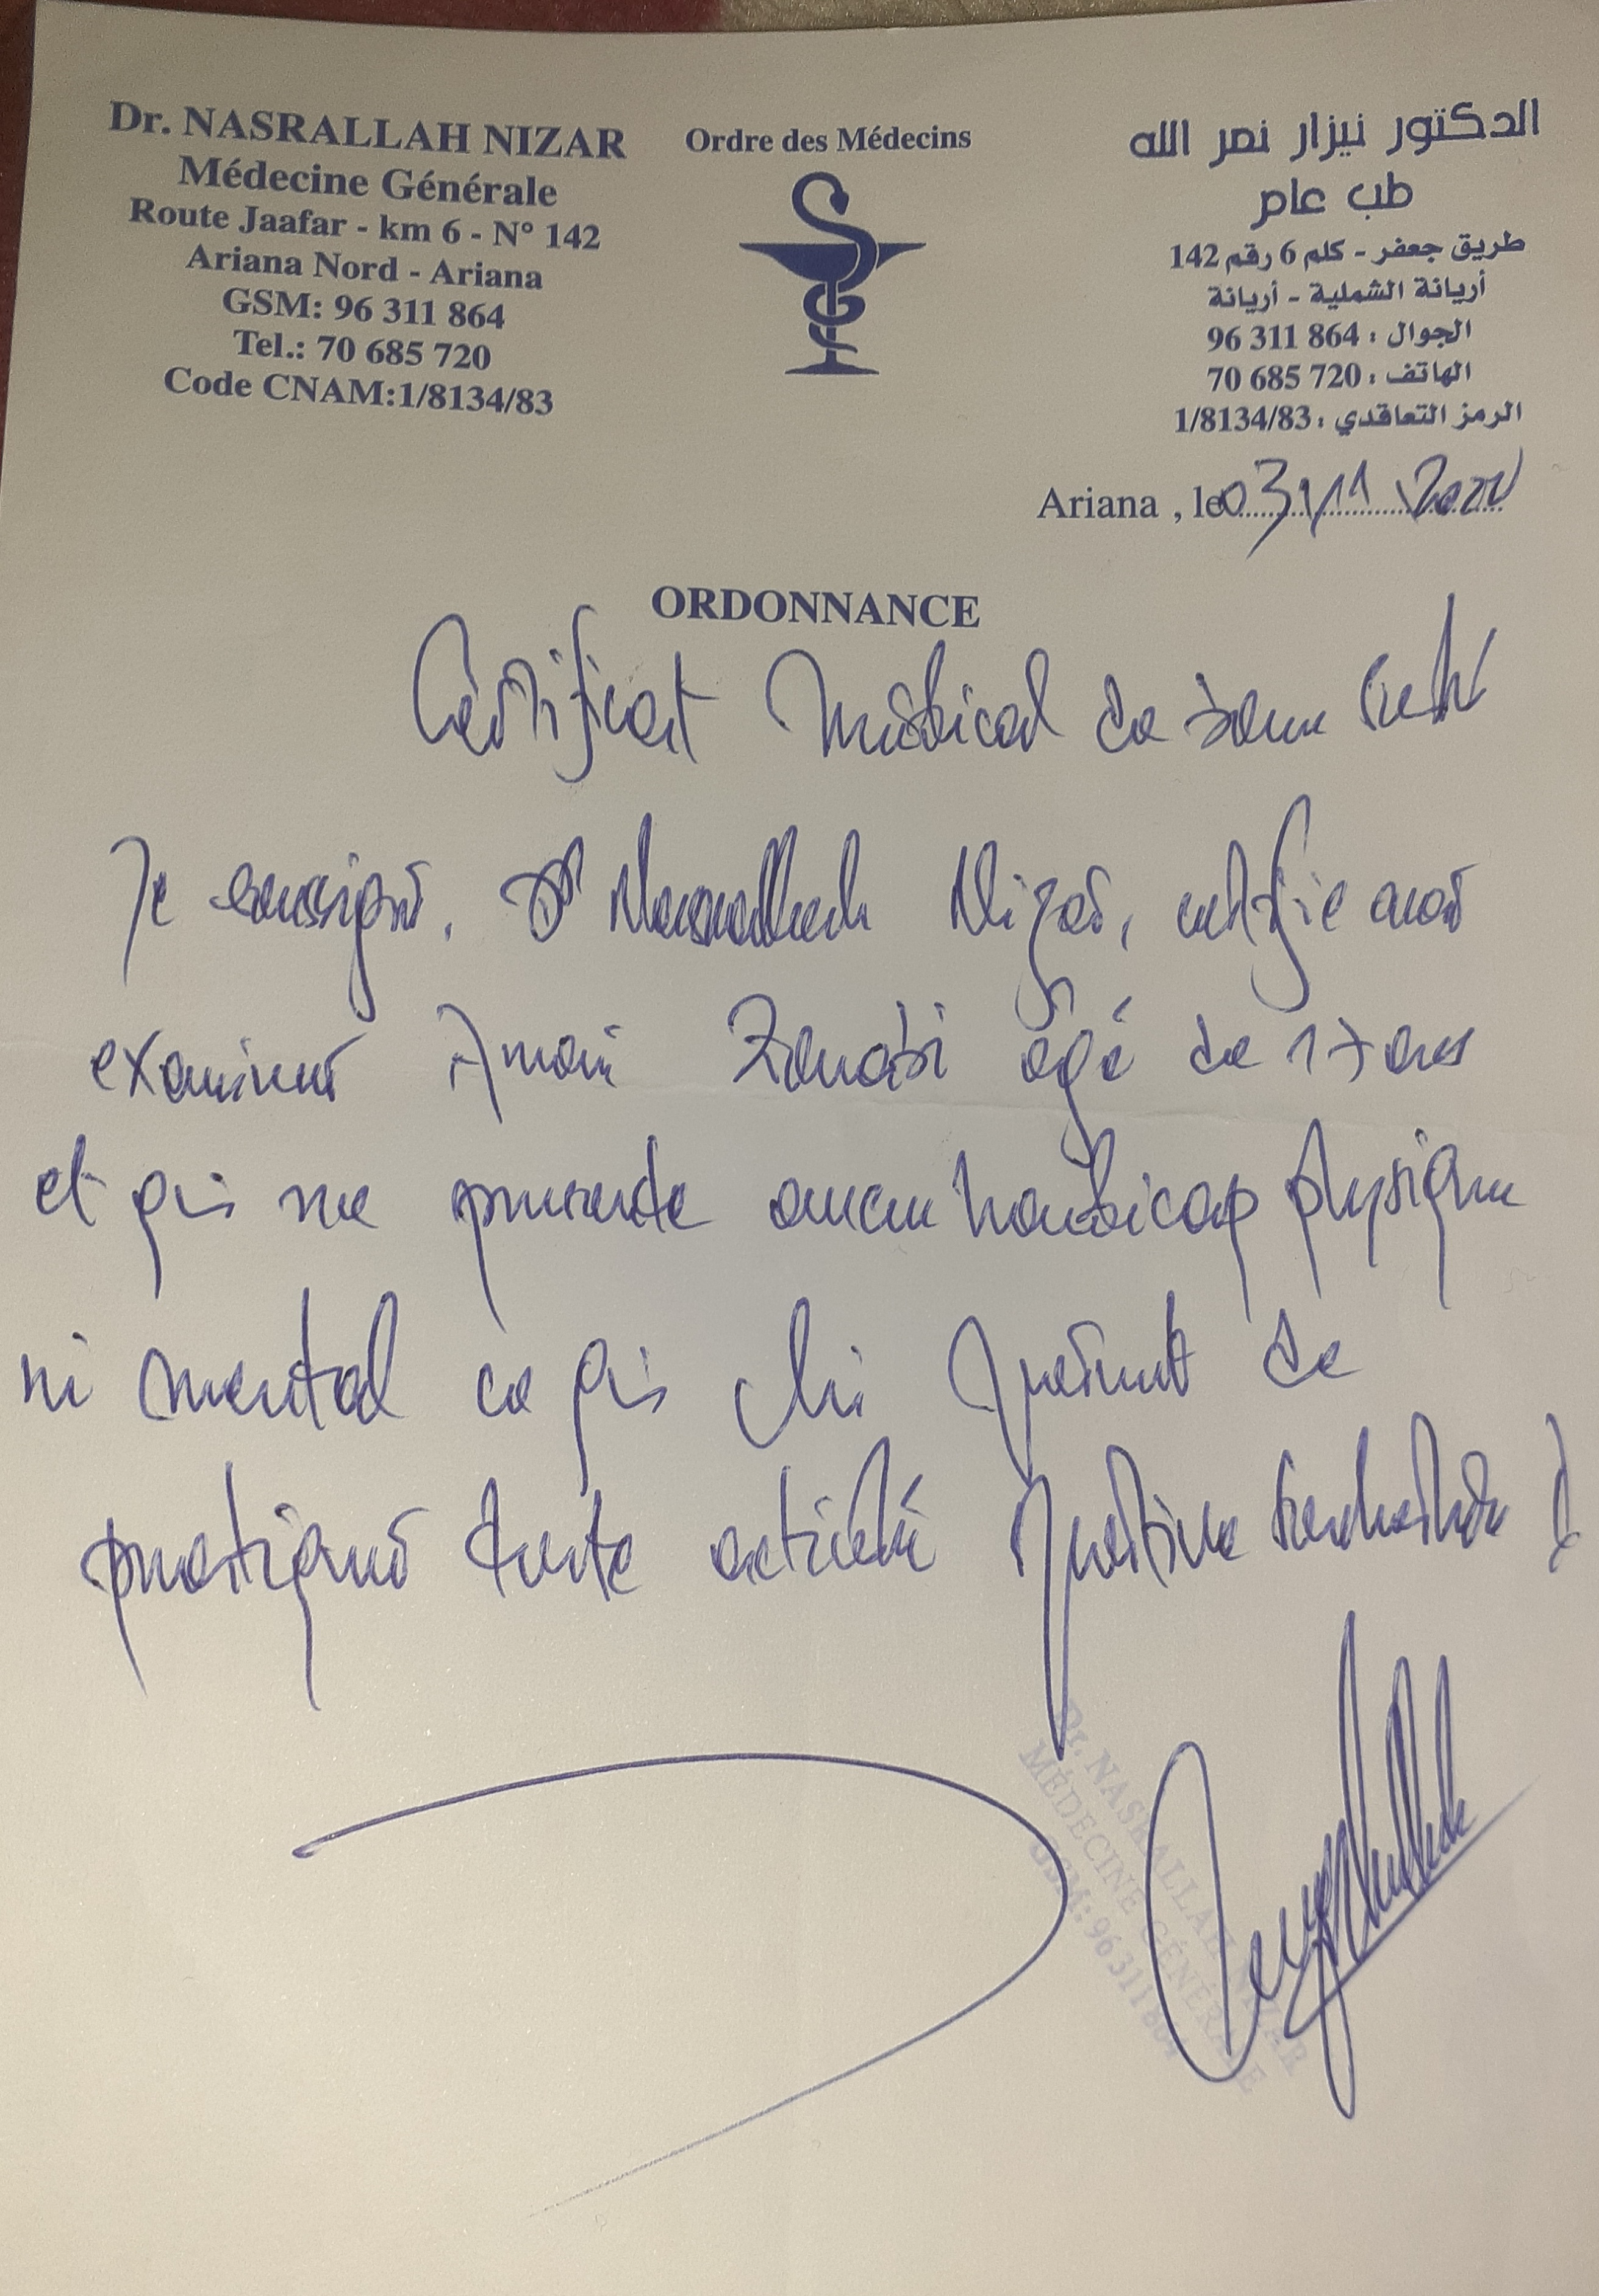 Dr. NASRALLAH NIZAR
Médecine Générale
Route Jaafar - km 6 - N° 142
Ariana Nord - Ariana
GSM: 96 311 864
Tel.: 70 685 720
Code CNAM:1/8134/83
Ordre des Médecins
الدكتور نيزار نصر الله
طب عام
طريق جعفر - كلم 6 رقم 142
أريانة الشملية - أريانة
الجوال : 96 311 864
الهاتف : 70 685 720
الرمز التعاقدي : 1/8134/83
Ariana , le 03/11
ORDONNANCE
Certificat Médical de bonne santé
Je soussigné, Dr Nasrallah Nizar, certifie avoir
examiner agé de 17 ans
et qui ne presente aucun handicap physique
ni mental ce qui lui permet de
pratiquer toute activité
Dr. NASRALLAH NIZAR
MÉDECINE GÉNÉRALE
GSM: 96 311 864